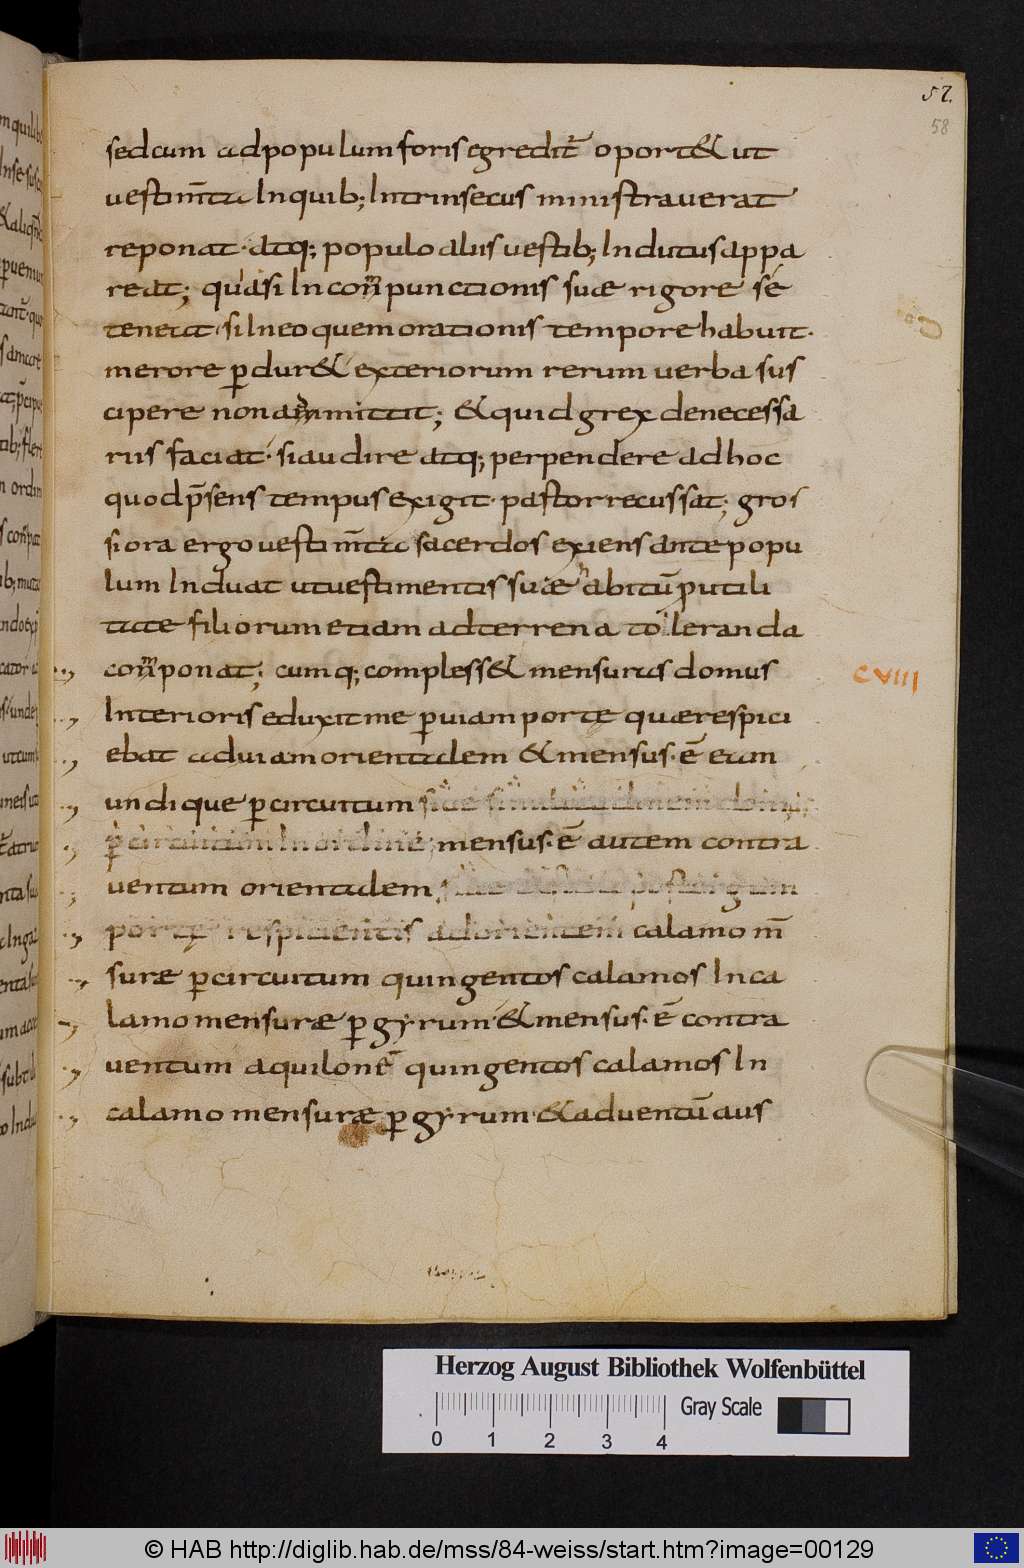 57.
58
sed cum ad populum foris egredit̄ oport& ut
vestim̄ta In quib; Intrinsecus ministraverat
reponat· atq; populo aliis vestib; Indutus appa
reat; quasi In conpunctionis suae rigore se
teneat· si In eo quem orationis tempore habuit·
merore p̱dur& exteriorum rerum verba sus
cipere non ammittit; & quid grex de necessa
riis faciat· si audire atq; perpendere ad hoc
quod p̄sens tempus exigit· pastor recussat; gros
siora ergo vestim̄ta sacerdos exiens ante popu
lum Induat ut vestimentis suae habitū p utili
tate filiorum etiam ad terrena toleranda
conponat; cumq; compless& mensuras domus
CVIII
Interioris eduxit me p̱ viam portę quae respici
ebat ad viam orientalem & mensus· ē eam
undique p̱ circuitum
p̱ circuitum In ordine; mensus· ē autem contra
ventum orientalem
portę respicientis ad orientem calamo m̄
surae p̱ circuitum quingentos calamos In ca
lamo mensurae p̱ gyrum· & mensus· ē contra
ventum aquilonē quingentos calamos In
calamo mensurae p̱ gyrum· & ad ventū aus
Herzog August Bibliothek Wolfenbüttel
Gray Scale
0 1 2 3 4
© HAB http://diglib.hab.de/mss/84-weiss/start.htm?image=00129